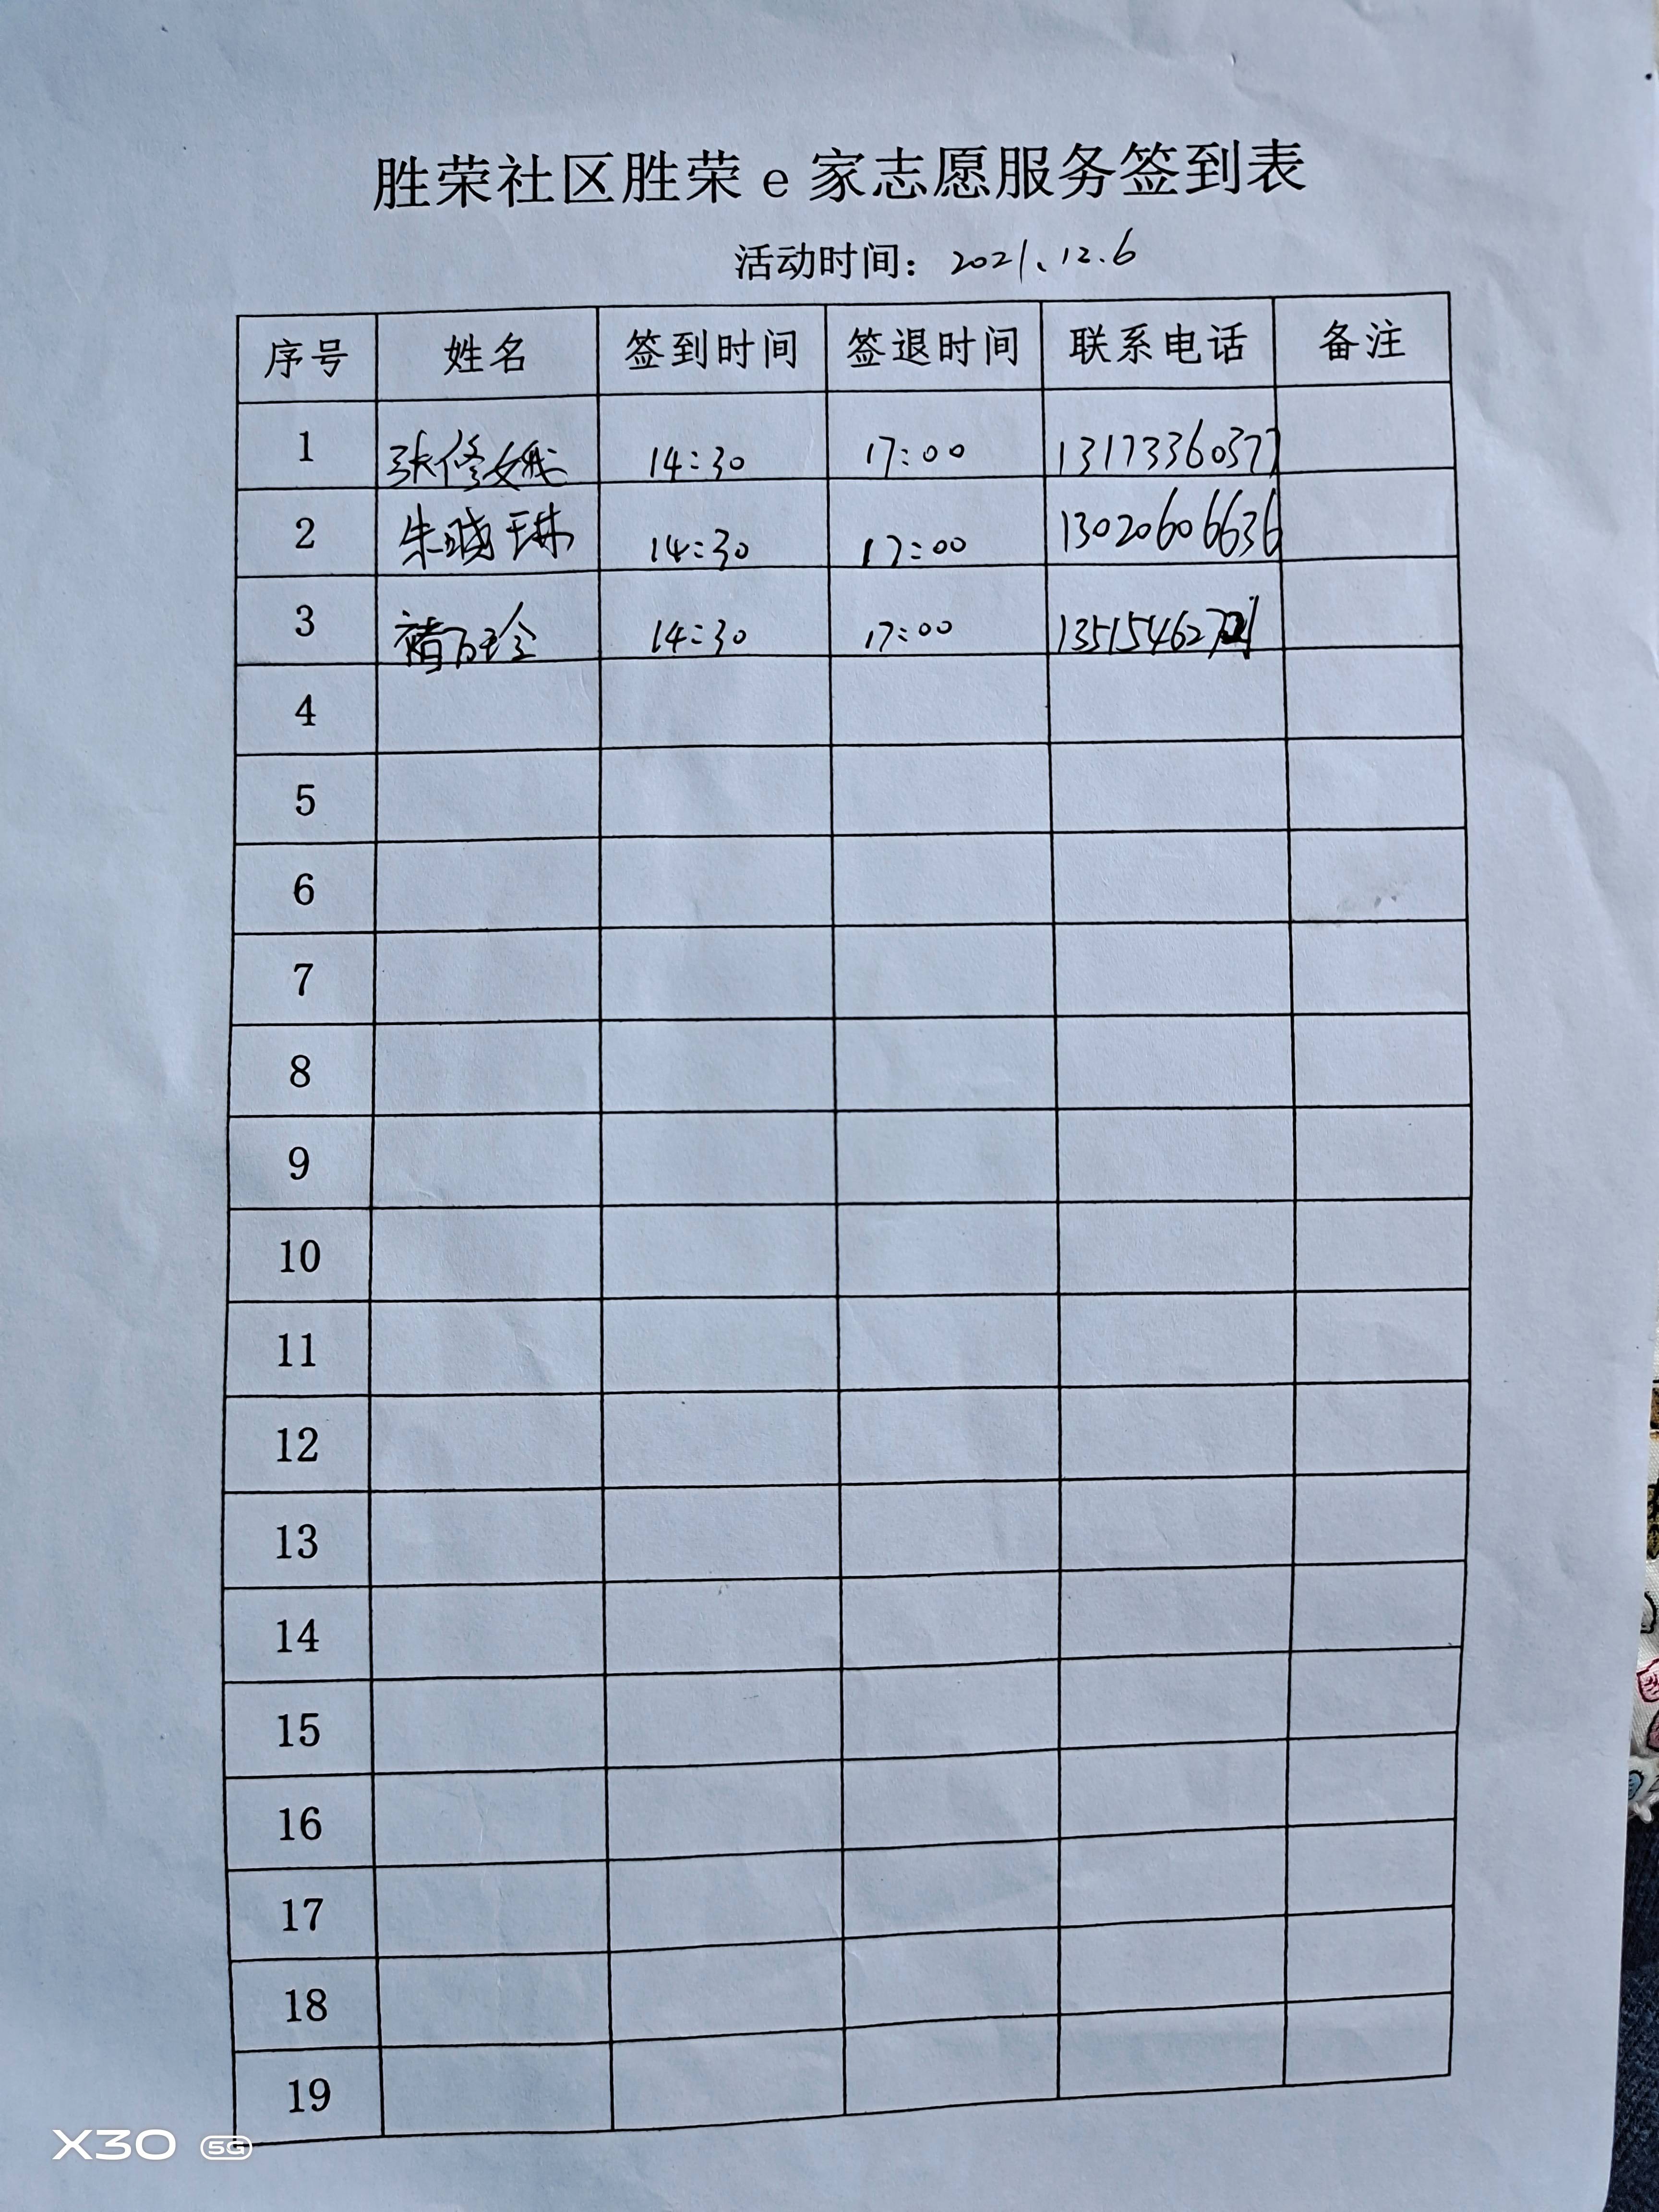 胜荣社区胜荣e家志愿服务签到表
活动时间：2021、12.6
序号 姓名 签到时间 签退时间 联系电话 备注
1 张修娥 14:30 17:00 13173360377
2 朱晓琳 14:30 17:00 13020606636
3 褚 珍 14:30 17:00
4
5
6
7
8
9
10
11
12
13
14
15
16
17
18
19
X30 5G